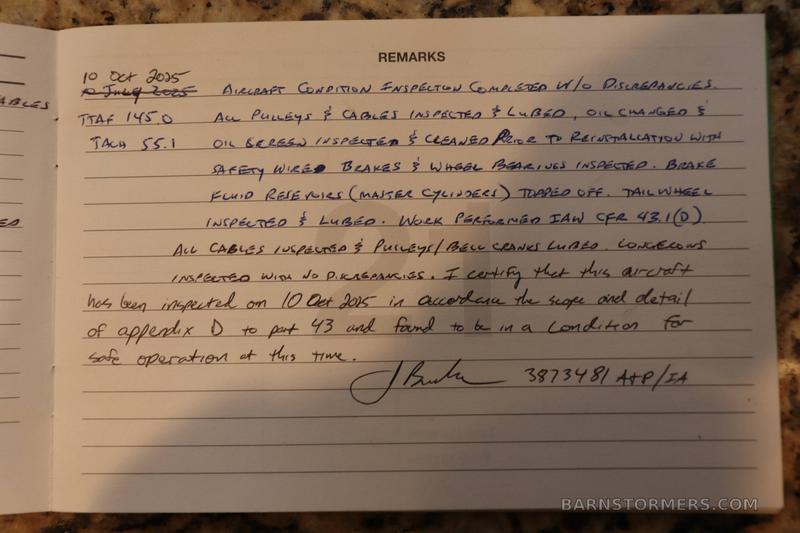 REMARKS
10 Oct 2025
10 July 2025 AIRCRAFT CONDITION INSPECTION COMPLETED W/O DISCREPANCIES.
ABLES
TTAF 145.0 ALL PULLEYS & CABLES INSPECTED & LUBED, OIL CHANGED &
TACH 55.1 OIL SCREEN INSPECTED & CLEANED PRIOR TO REINSTALLATION WITH
SAFETY WIRE. BRAKES & WHEEL BEARINGS INSPECTED. BRAKE
FLUID RESEVOIRS (MASTER CYLINDERS) TOPPED OFF. TAILWHEEL
INSPECTED & LUBED. WORK PERFORMED IAW CFR 43.1(D)
ALL CABLES INSPECTED & PULLEYS/BELL CRANKS LUBED. LONGERONS
INSPECTED WITH NO DISCREPANCIES. I certify that this aircraft
has been inspected on 10 Oct 2025 in accordance the scope and detail
of appendix D to part 43 and found to be in a condition for
safe operation at this time.
3873481 A+P/IA
21
BARNSTORMERS.COM